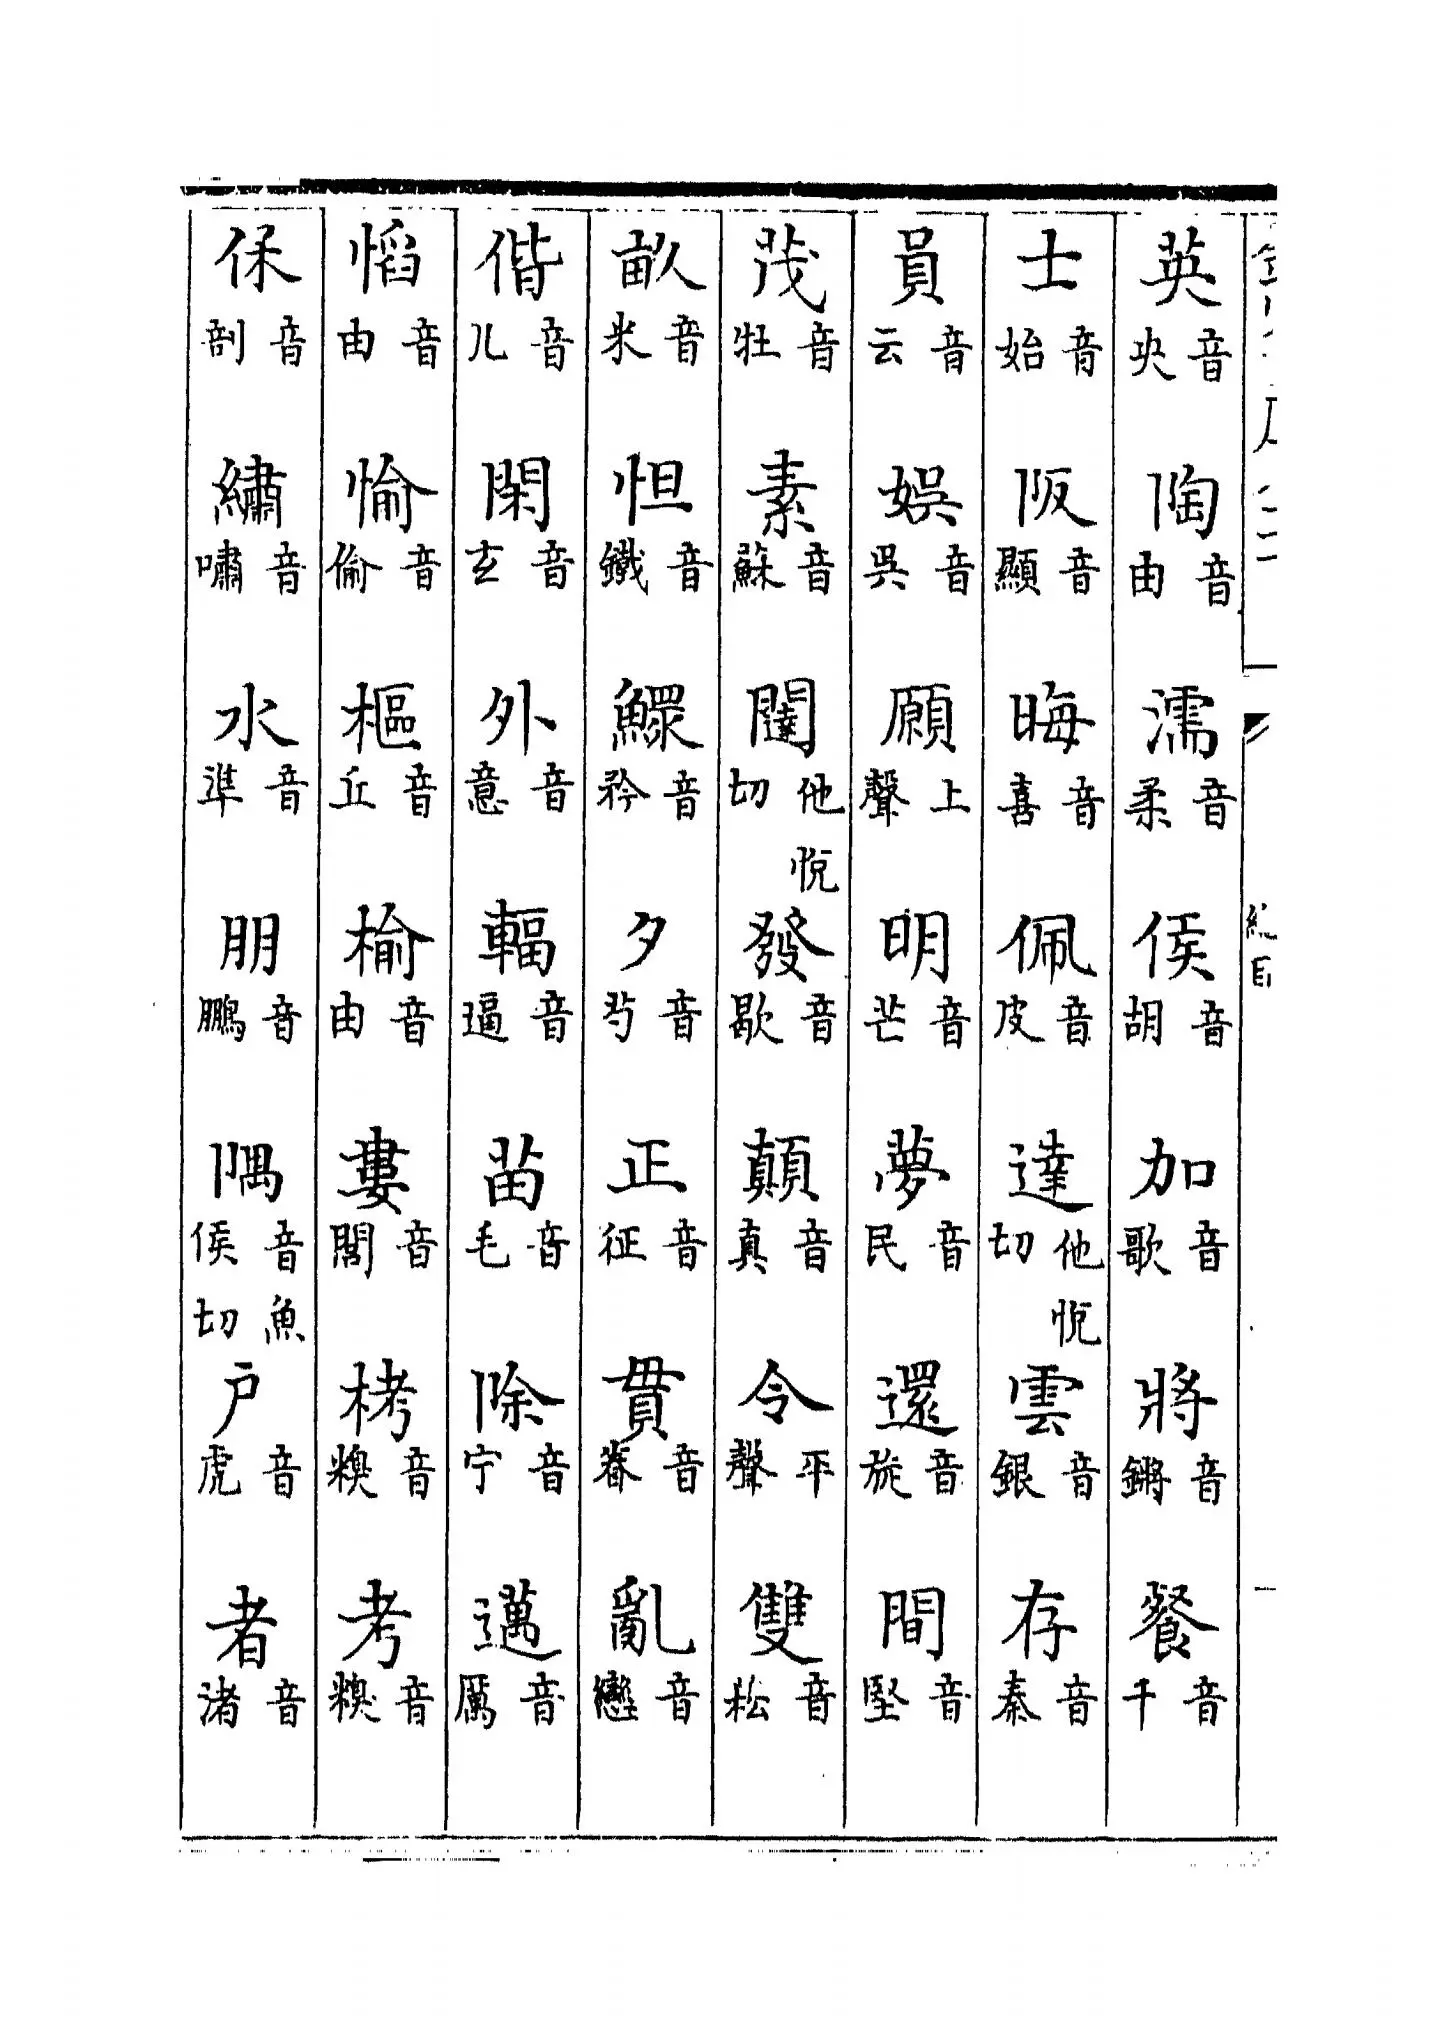 英音央 陶音由 濡音柔 侯音胡 加音歌 將音鏘 餐音千
士音始 阪音顯 晦音喜 佩音皮 達他悅切 雲音銀 存音秦
員音云 娛音吳 願上聲 明音芒 夢音民 還音旋 間音堅
茂音牡 素音蘇 闥他悅切 發音歇 顛音真 令平聲 雙音松
畝音米 怛音鐵 鰥音矜 夕音芍 正音征 貫音眷 亂音戀
偕音几 閑音玄 外音意 輻音逼 苗音毛 除音宁 邁音厲
慆音由 愉音偷 樞音丘 榆音由 婁音閭 栲音糗 考音糗
保音剖 繡音嘯 水音準 朋音鵬 隅音魚侯切 戶音虎 者音渚
總目